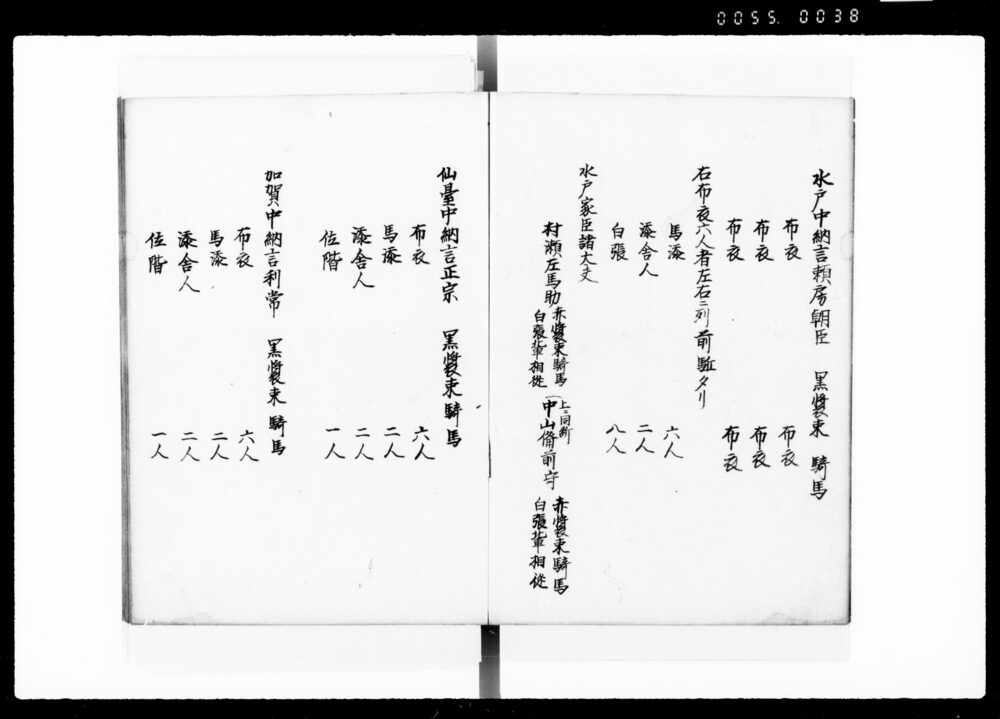 0055. 0038
水戸中納言頼房朝臣 黒装束 騎馬
布衣 布衣
布衣 布衣
布衣 布衣
右布衣六人者左右ニ列前駈タリ
馬添 六人
添舎人 二人
白張 八人
水戸家臣諸大夫
村瀬左馬助 赤装束騎馬 白張輩相従
中山備前守 赤装束騎馬 白張輩相従
仙臺中納言正宗 黒装束騎馬
布衣 六人
馬添 二人
添舎人 二人
位階 一人
加賀中納言利常 黒装束騎馬
布衣 六人
馬添 二人
添舎人 二人
位階 一人